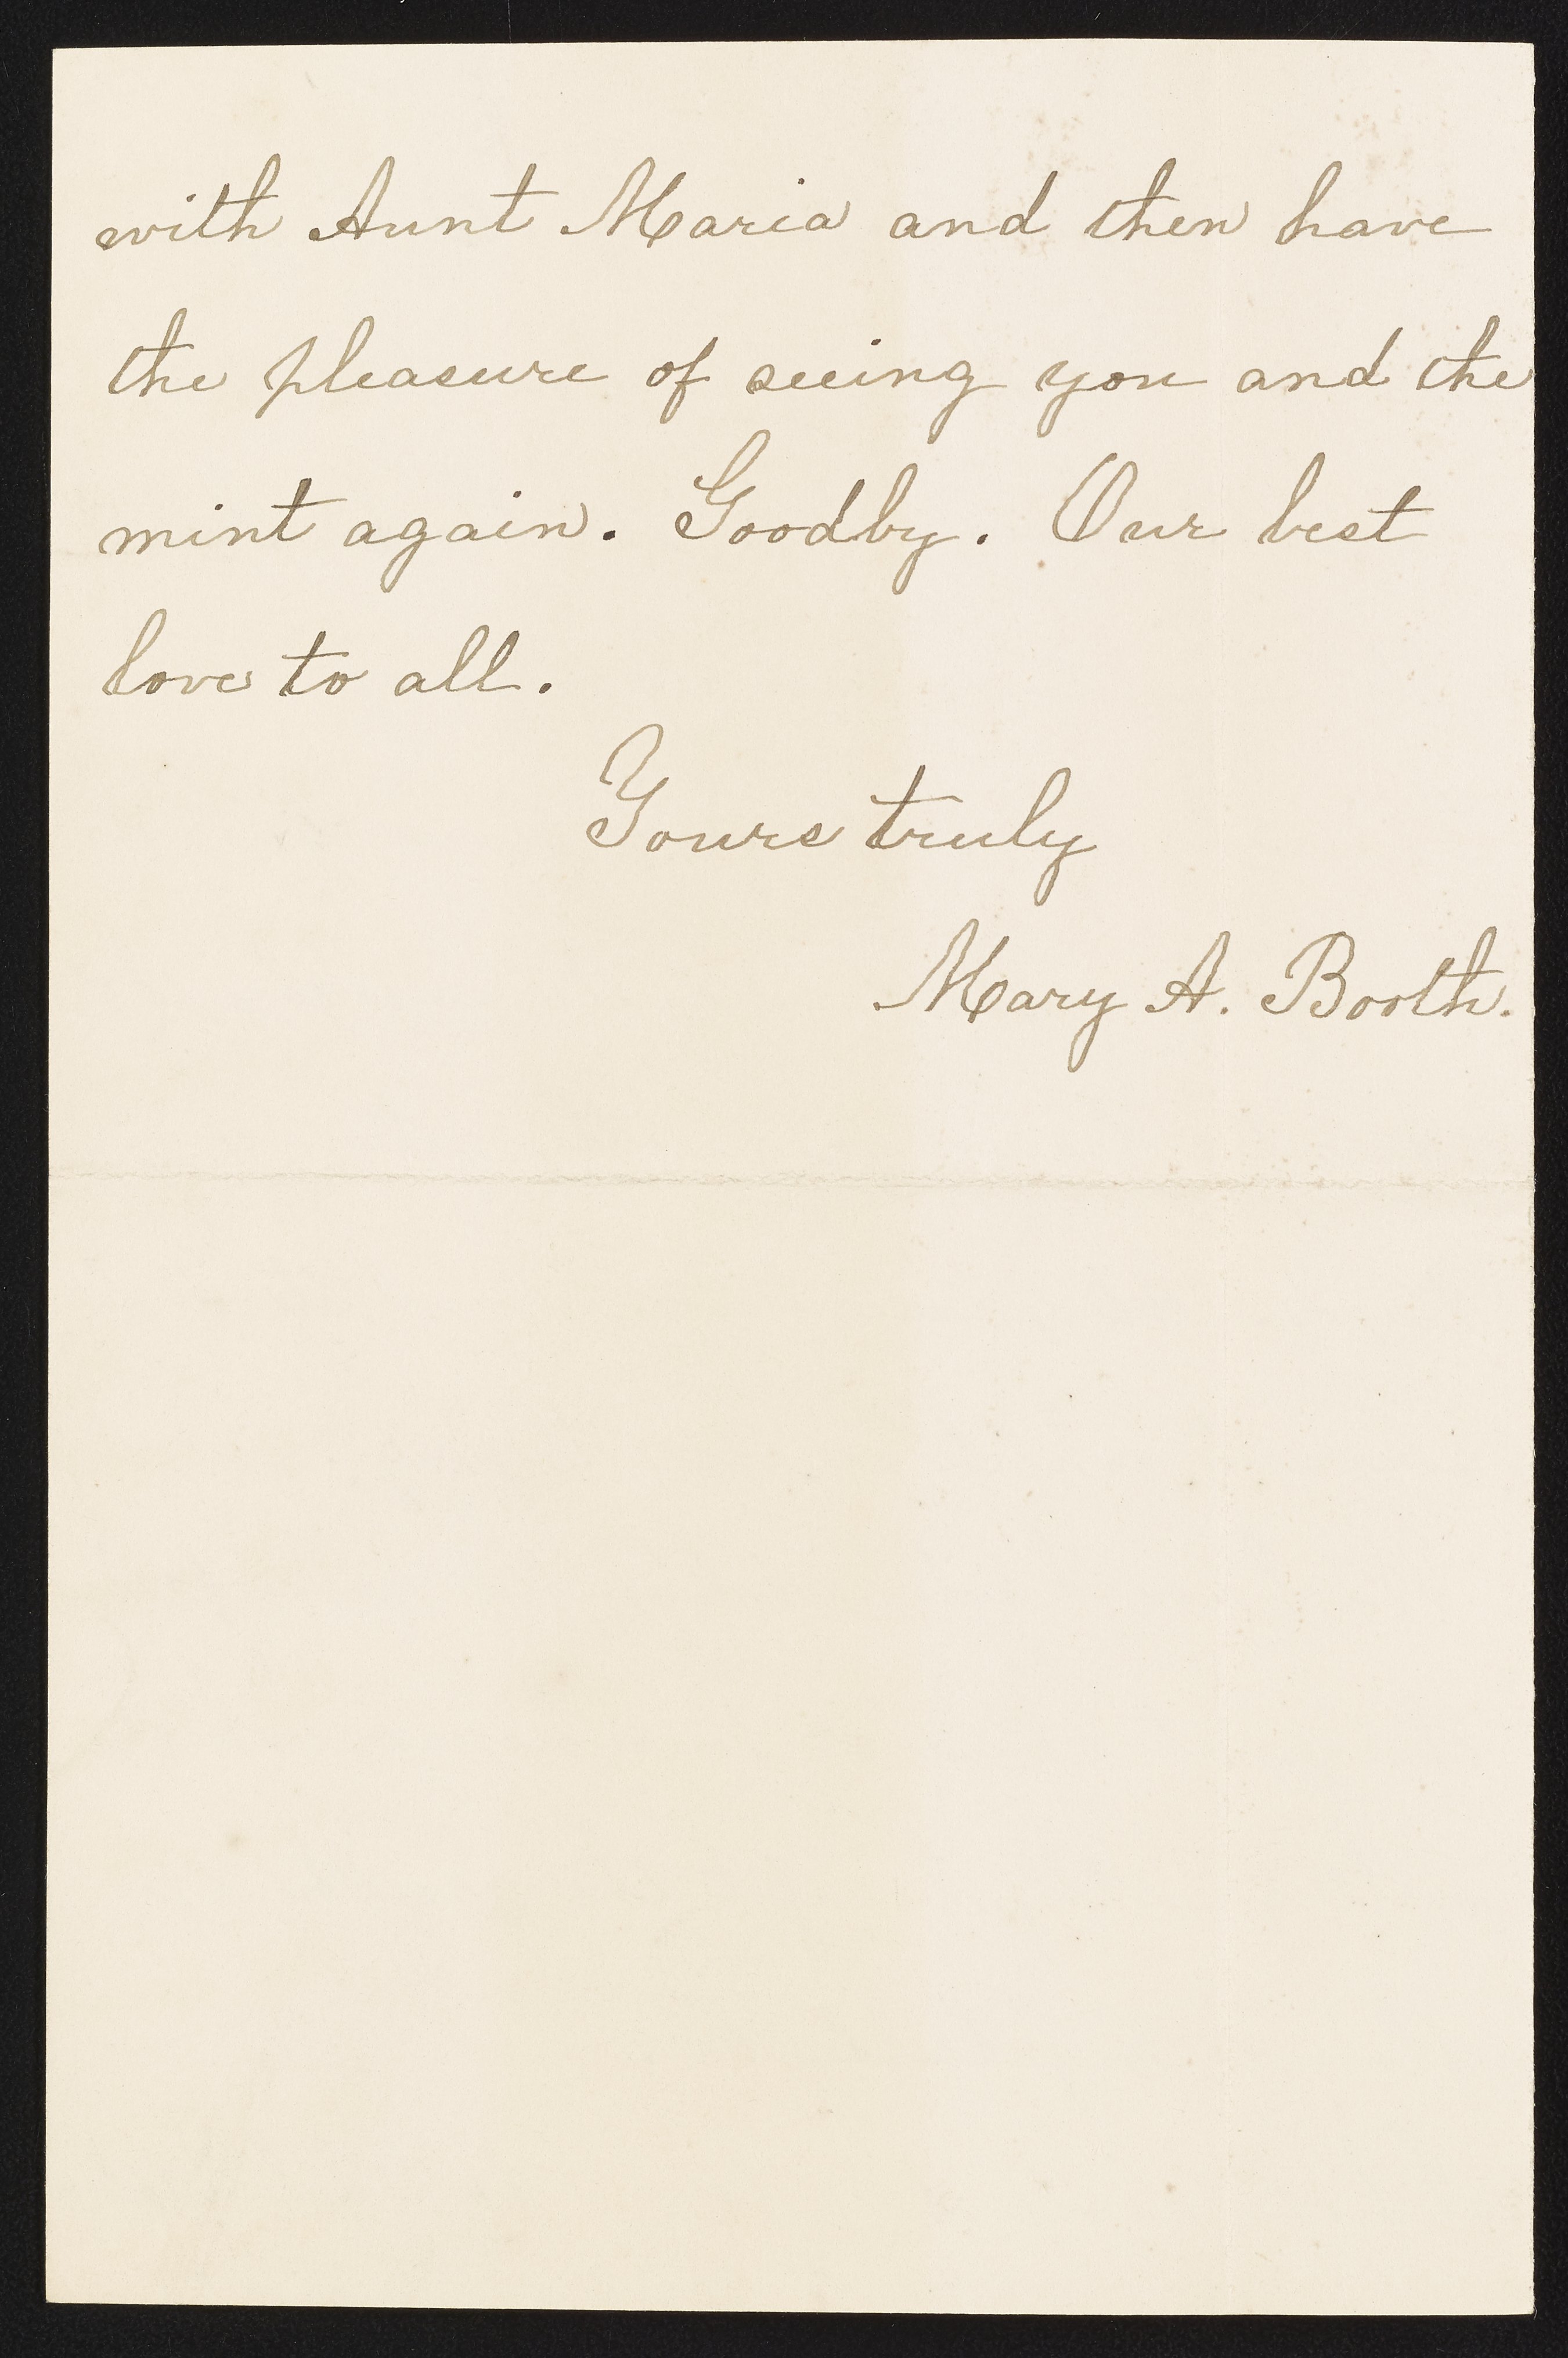 with Aunt Maria and then have
the pleasure of seeing you and the
mint again. Goodby. Our best
love to all.
Yours truly
Mary A. Booth.